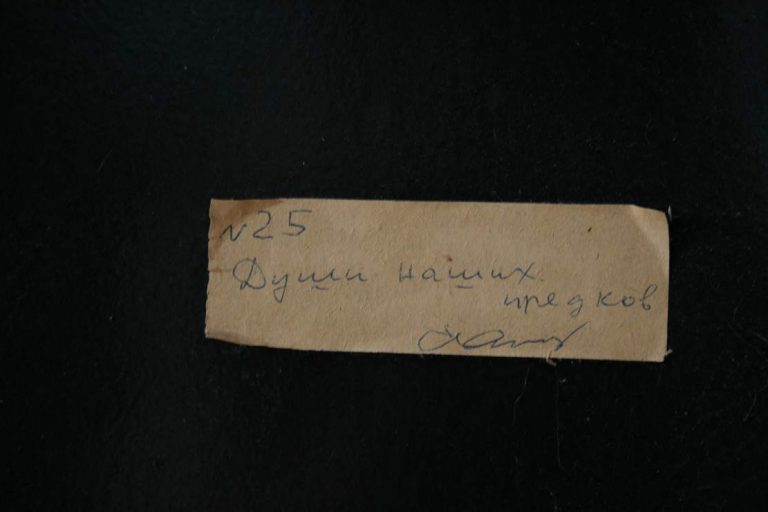 N25
Души наших
предков